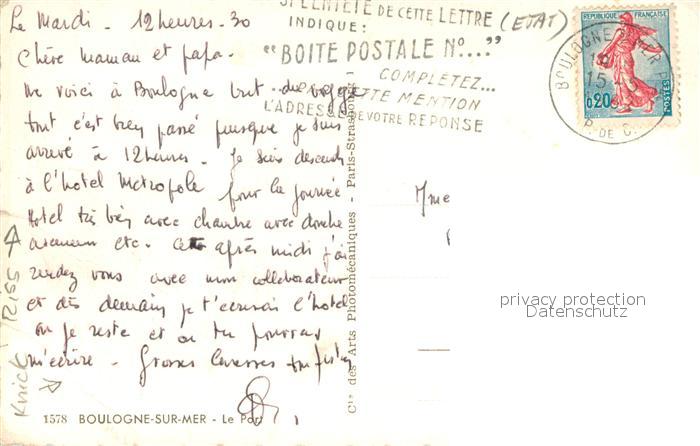 Le Mardi - 12 heures - 30
Chère Maman et papa.
Me voici à Boulogne but du voyage
tout c'est bien passé puisque je suis
arrivé à 12 heures. Je suis descendu
à l'hotel Metropole pour la journée
Hotel très bien avec chambre avec douche
ascenseur etc. Cette après midi j'ai
rendez vous avec mon collaborateur
et dès demain je t'écrirai l'hotel
où je reste et où tu pourras
m'écrire - Grosses Caresses ton fiston
1578 BOULOGNE-SUR-MER - Le Port
Knick
Riss
Cie des Arts Photomécaniques - Paris-Strasbourg
DE CETTE LETTRE (ETAT)
INDIQUE:
"BOITE POSTALE No..."
COMPLÉTEZ...
CETTE MENTION
L'ADRESSE DE VOTRE REPONSE
BOULOGNE
15
P. DE C.
REPUBLIQUE FRANÇAISE
0,20
POSTES
Mme
privacy protection
Datenschutz